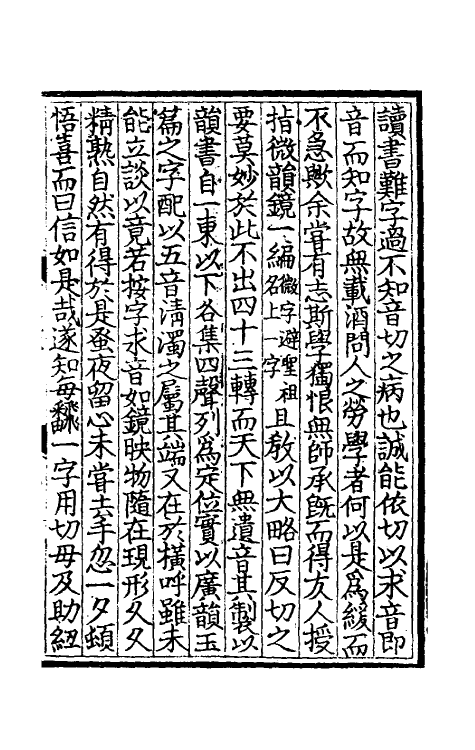 讀書難字過不知音切之病也誠能依切以求音即
音而知字故無載酒問人之勞學者何以是爲緩而
不急歟余嘗有志斯學獨恨無師承旣而得友人授
指微韻鏡一編微字避聖祖名上一字且教以大略曰反切之
要莫妙於此不出四十三轉而天下無遺音其製以
韻書自一東以下各集四聲列爲定位實以廣韻玉
篇之字配以五音淸濁之屬其端又在於橫呼雖未
能立談以竟若按字求音如鏡映物隨在現形久久
精熟自然有得於是蚤夜留心未嘗去手忽一夕頓
悟喜而曰信如是哉遂知每飜一字用切母及助紐